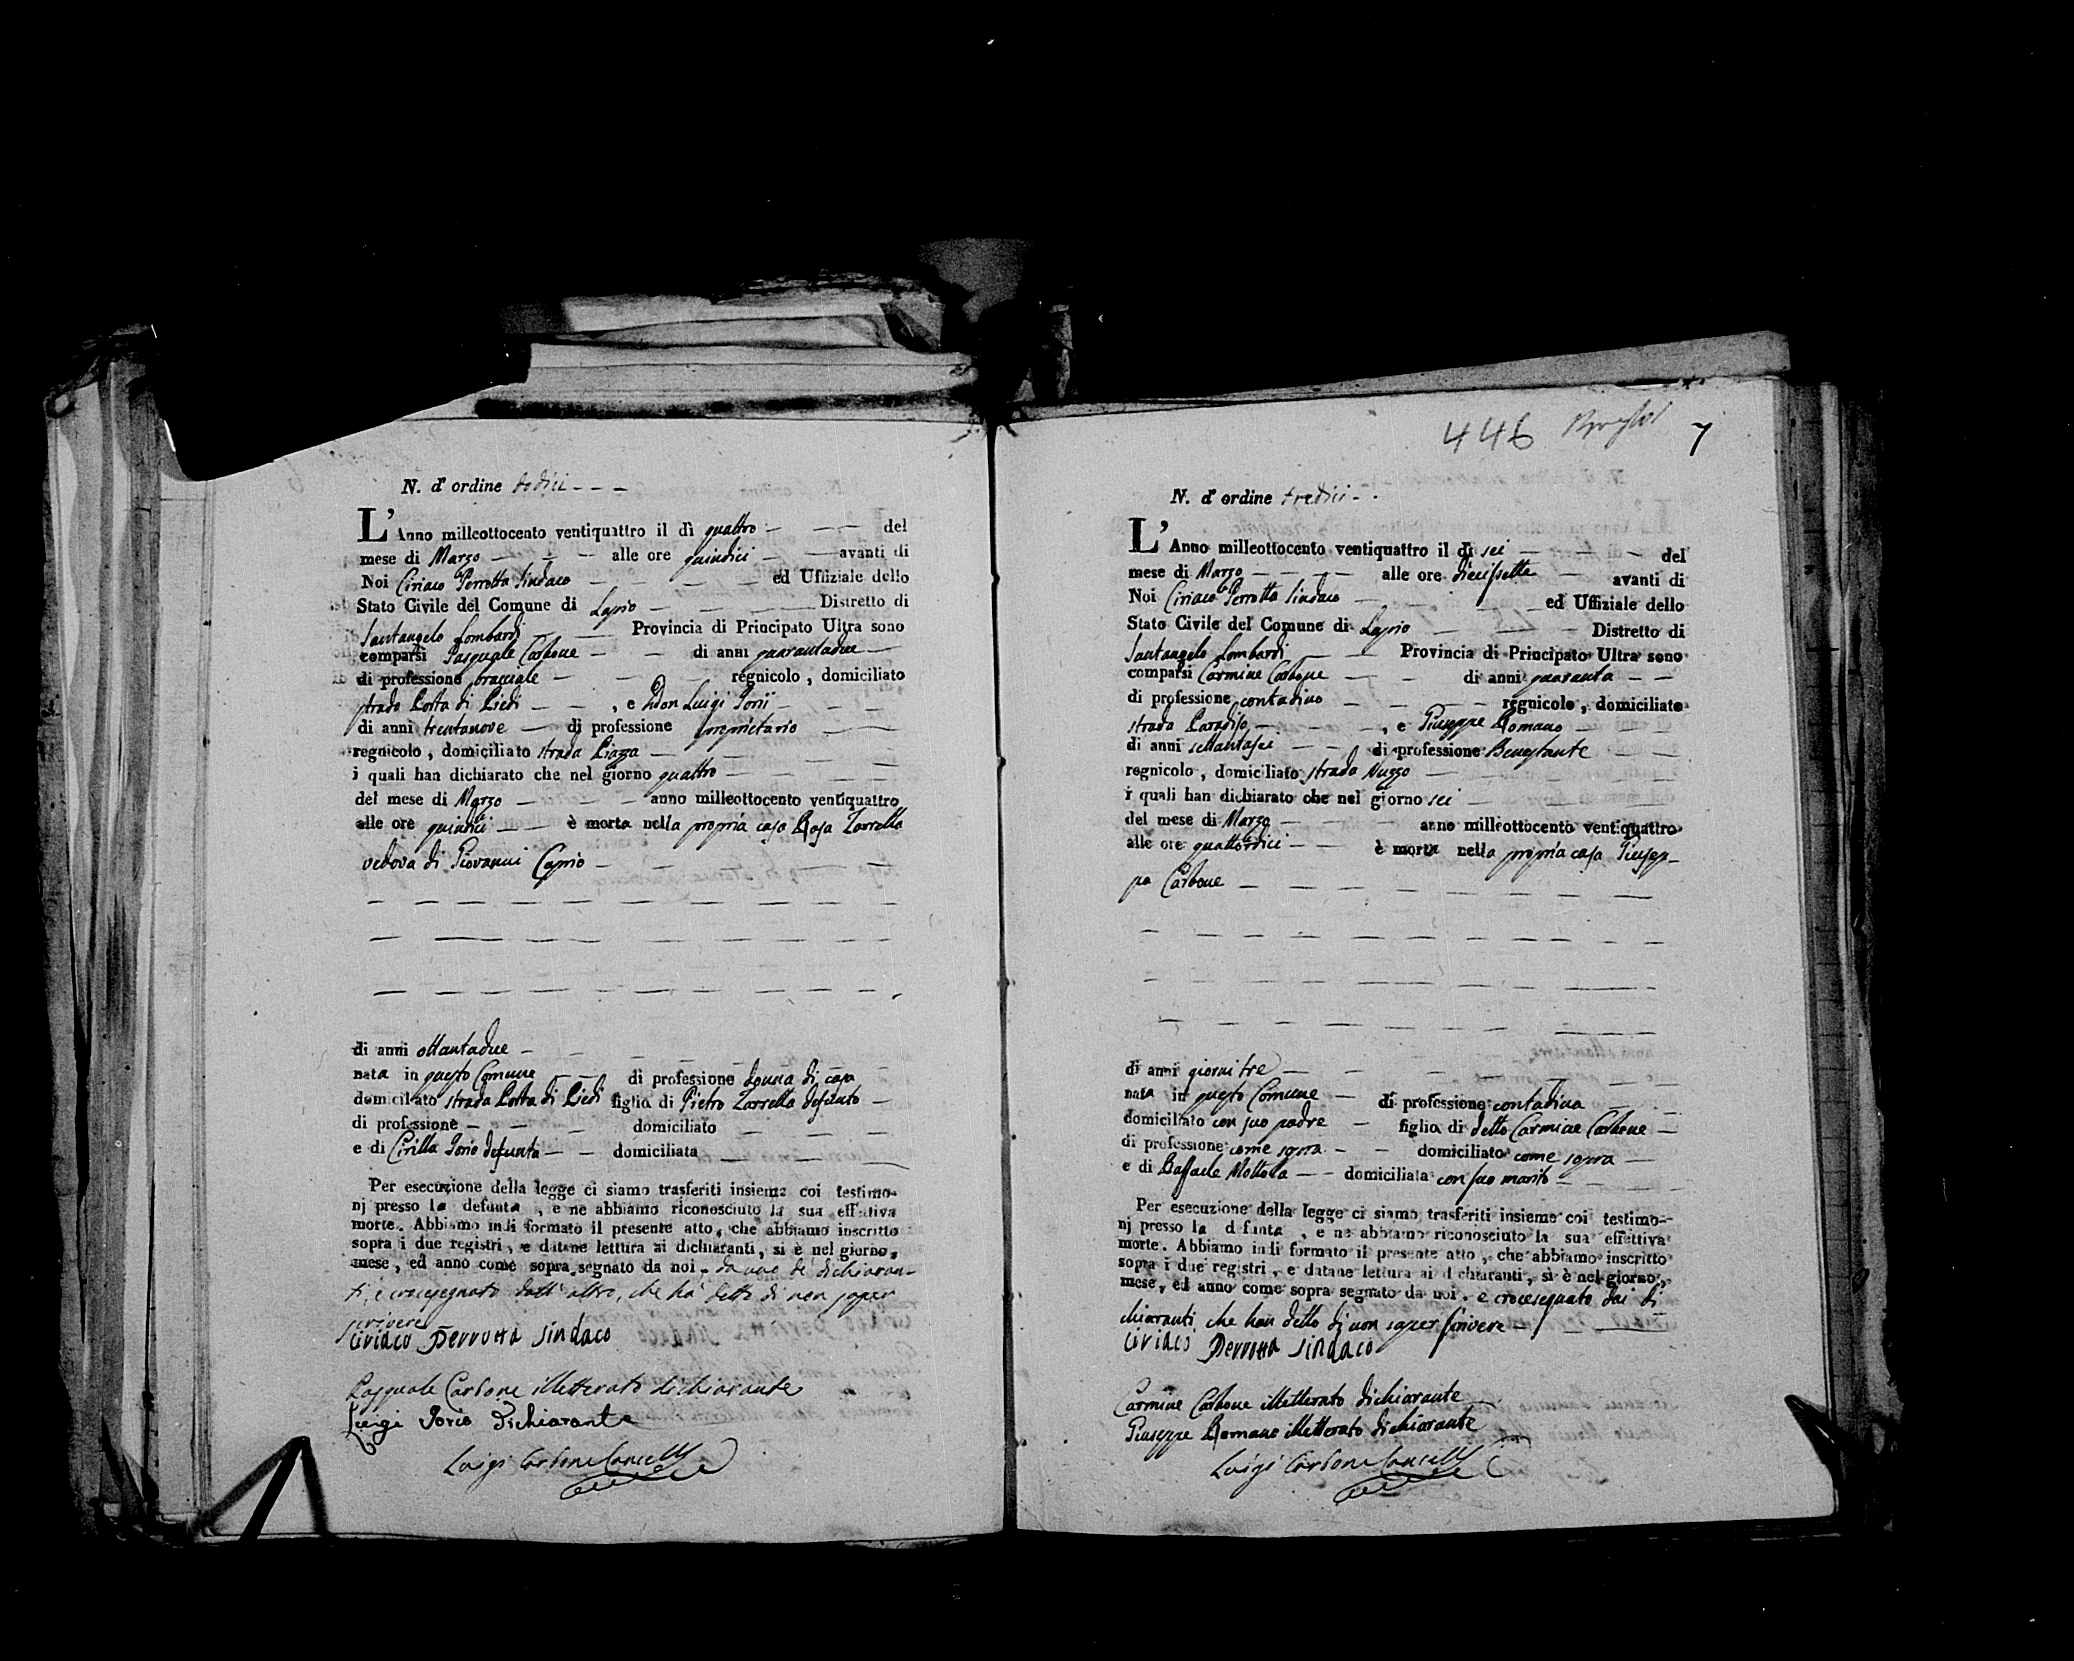 N. d' ordine dodici
L'Anno milleottocento ventiquattro il dì quattro del
mese di Marzo alle ore quindici avanti di
Noi Ciriaco Perrotta Sindaco ed Uffiziale dello
Stato Civile del Comune di Lapio Distretto di
Santangelo Lombardi Provincia di Principato Ultra sono
comparsi Pasquale Carbone di anni quarantadue
di professione bracciale regnicolo, domiciliato
strada Costa di Piedi, e Don Luigi Iorii
di anni trentanove di professione proprietario
regnicolo, domiciliato strada Piazza
i quali han dichiarato che nel giorno quattro
del mese di Marzo anno milleottocento ventiquattro
alle ore quindici è morta nella propria casa Rosa Zarrella
vedova di Giovanni Caprio
di anni ottantadue
nata in questo Comune di professione donna di casa
domiciliato strada Costa di Piedi figlia di Pietro Zarrella defunto
di professione domiciliato
e di Cirilla Iorio defunta domiciliata
Per esecuzione della legge ci siamo trasferiti insieme coi testimo-
nj presso la defunta, e ne abbiamo riconosciuto la sua effettiva
morte. Abbiamo indi formato il presente atto, che abbiamo inscritto
sopra i due registri, e datane lettura ai dichiaranti, si è nel giorno,
mese, ed anno come sopra segnato da noi, da uno de' dichiaran-
ti, e crocesegnato dall' altro, che ha detto di non saper
scrivere
Ciriaco Perrotta Sindaco
Pasquale Carbone illetterato dichiarante
Luigi Iorio Dichiarante
Luigi Carbone Cancell
446
7
N. d' ordine tredici
L'Anno milleottocento ventiquattro il dì sei del
mese di Marzo alle ore diecissette avanti di
Noi Ciriaco Perrotta Sindaco ed Uffiziale dello
Stato Civile del Comune di Lapio Distretto di
Santangelo Lombardi Provincia di Principato Ultra sono
comparsi Carmine Carbone di anni quaranta
di professione contadino regnicolo, domiciliato
strada Paradiso, e Giuseppe Romano
di anni settantasei di professione Benestante
regnicolo, domiciliato strada Nuzzo
i quali han dichiarato che nel giorno sei
del mese di Marzo anno milleottocento ventiquattro
alle ore quattordici è morta nella propria casa Giusep-
pa Carbone
di anni giorni tre
nata in questo Comune di professione contadina
domiciliato con suo padre figlia di detto Carmine Carbone
di professione come sopra domiciliato come sopra
e di Raffaele Mottola domiciliata con suo marito
Per esecuzione della legge ci siamo trasferiti insieme coi testimo-
nj presso la defunta, e ne abbiamo riconosciuto la sua effettiva
morte. Abbiamo indi formato il presente atto, che abbiamo inscritto
sopra i due registri, e datane lettura ai dichiaranti, si è nel giorno,
mese, ed anno come sopra segnato da noi, e crocesegnato dai di
chiaranti che han detto di non saper scrivere
Ciriaco Perrotta Sindaco
Carmine Carbone illetterato dichiarante
Giuseppe Romano illetterato dichiarante
Luigi Carbone Cancell